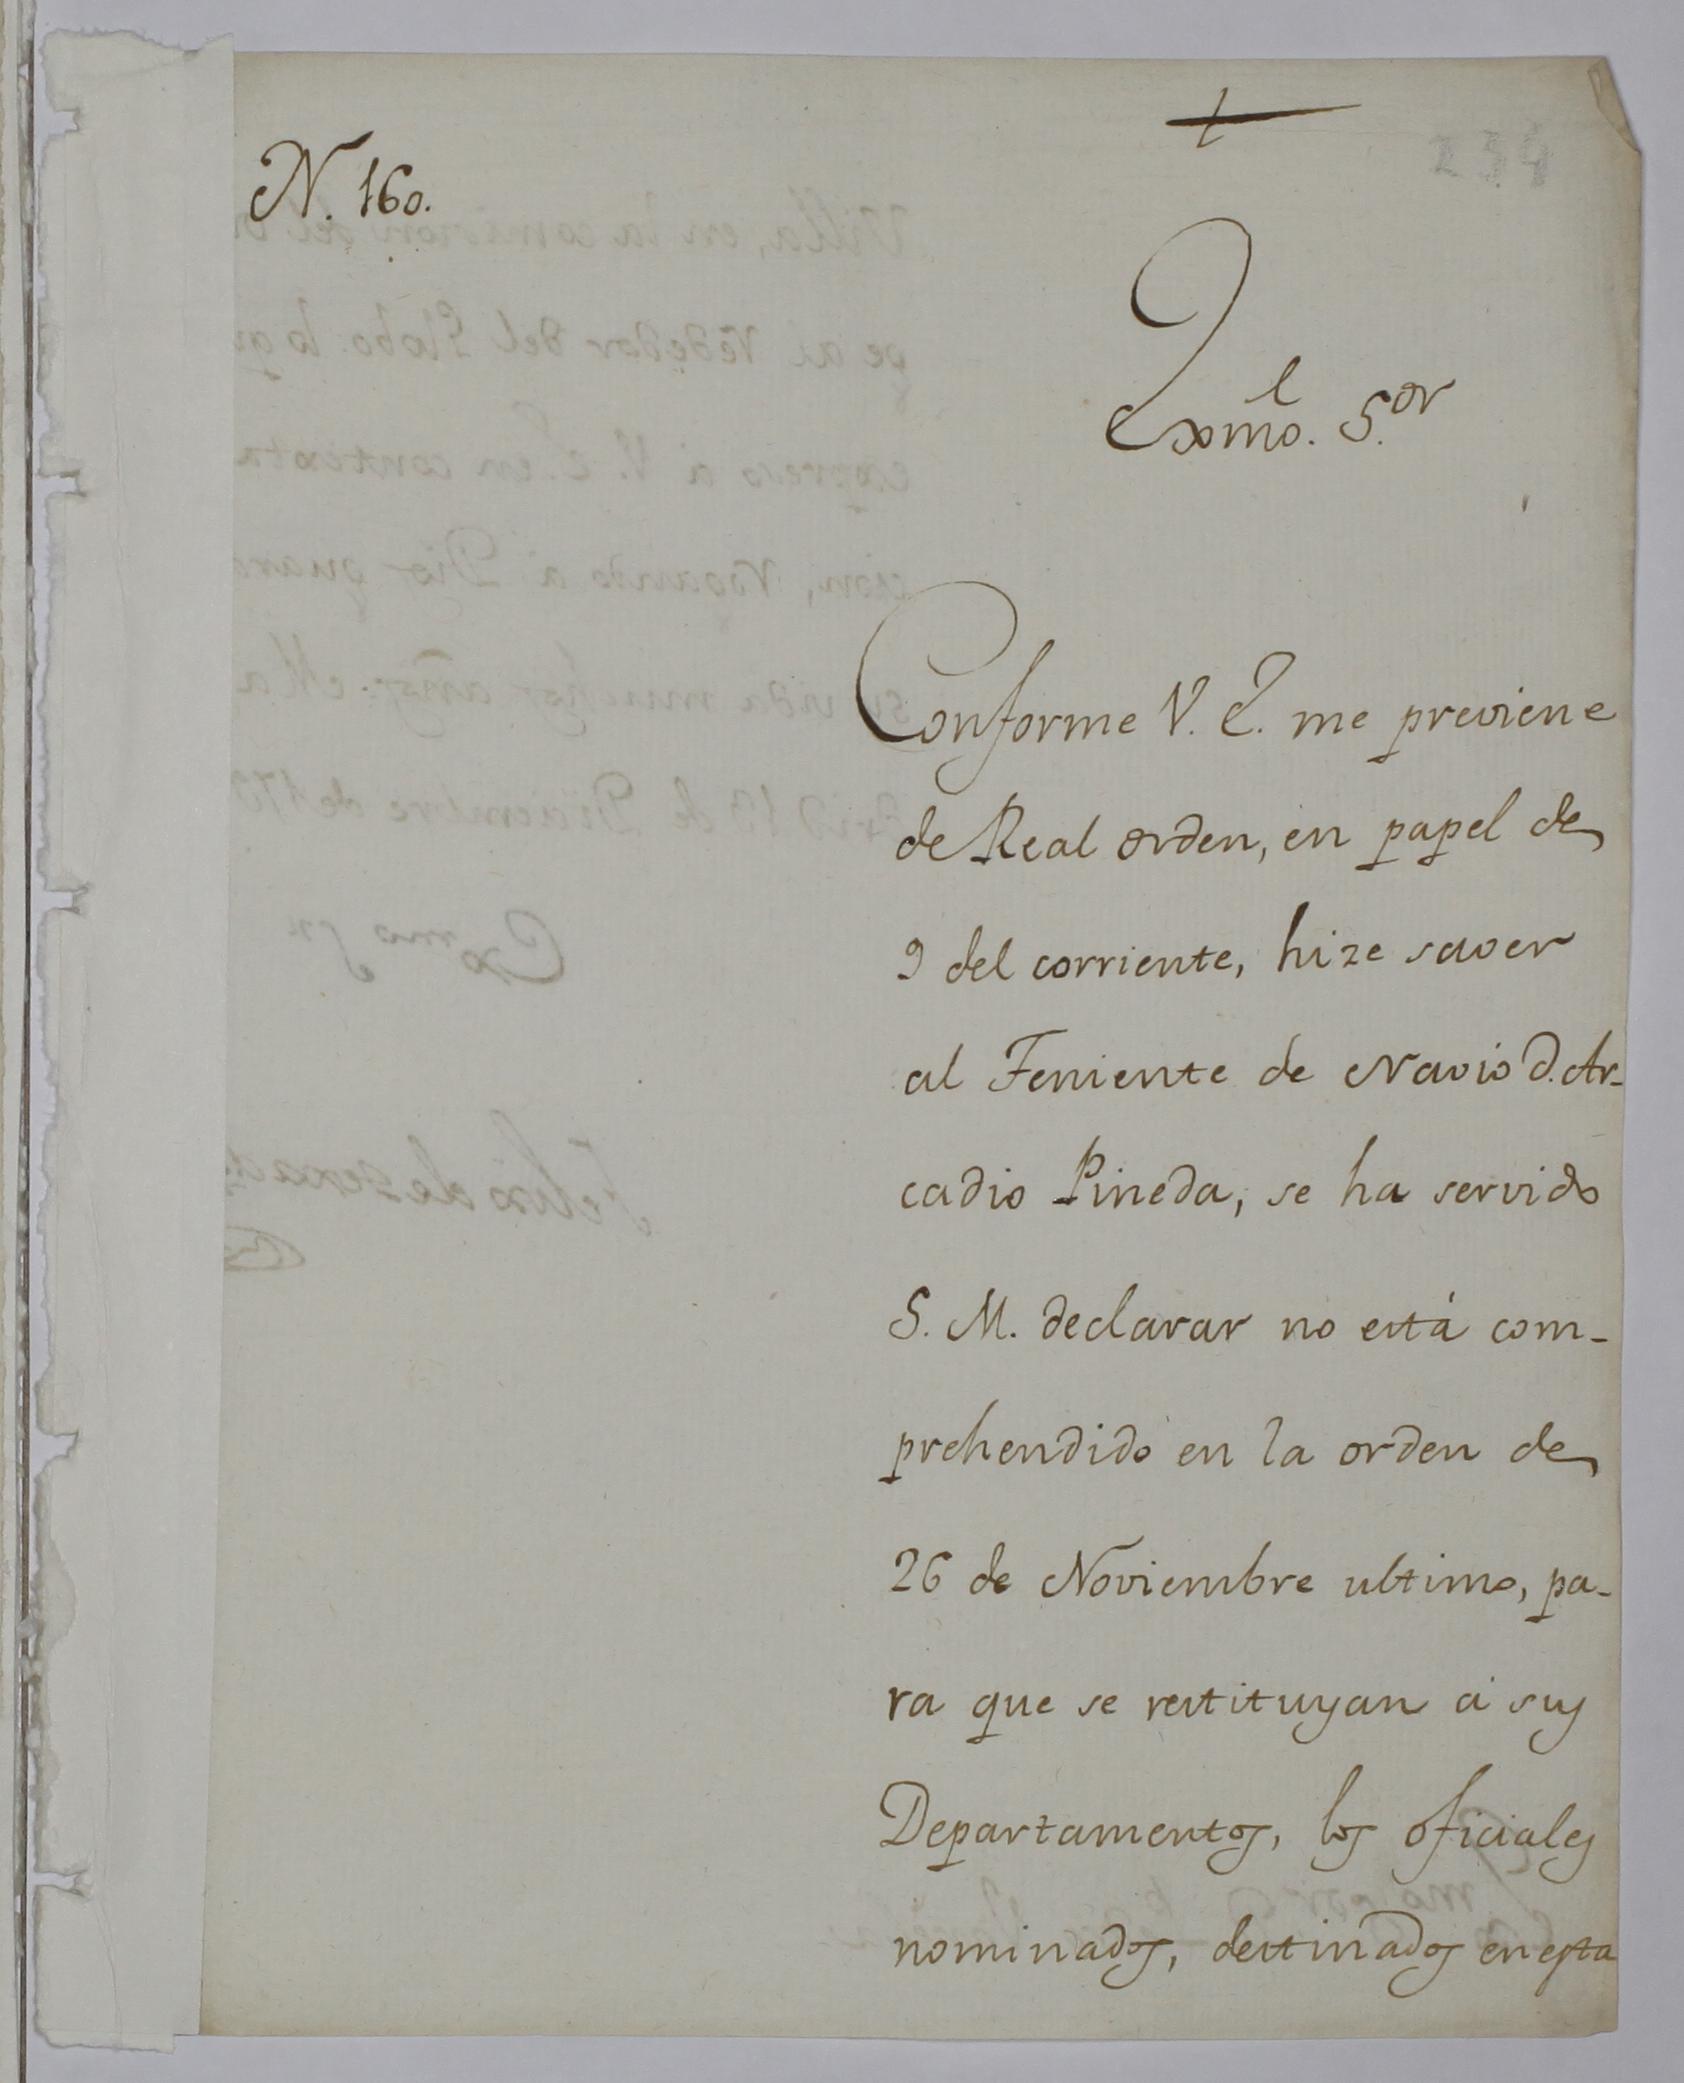 N. 160.
Exmo. S.or
Conforme V. E. me previene
de Real orden, en papel de
9 del corriente, hize saver
al Teniente de Navio D. Ar-
cadio Pineda, se ha servido
S. M. declarar no está com-
prehendido en la orden de
26 de Noviembre ultimo, pa-
ra que se restituyan á sus
Departamentos, los oficiales
nominados, destinados en esta